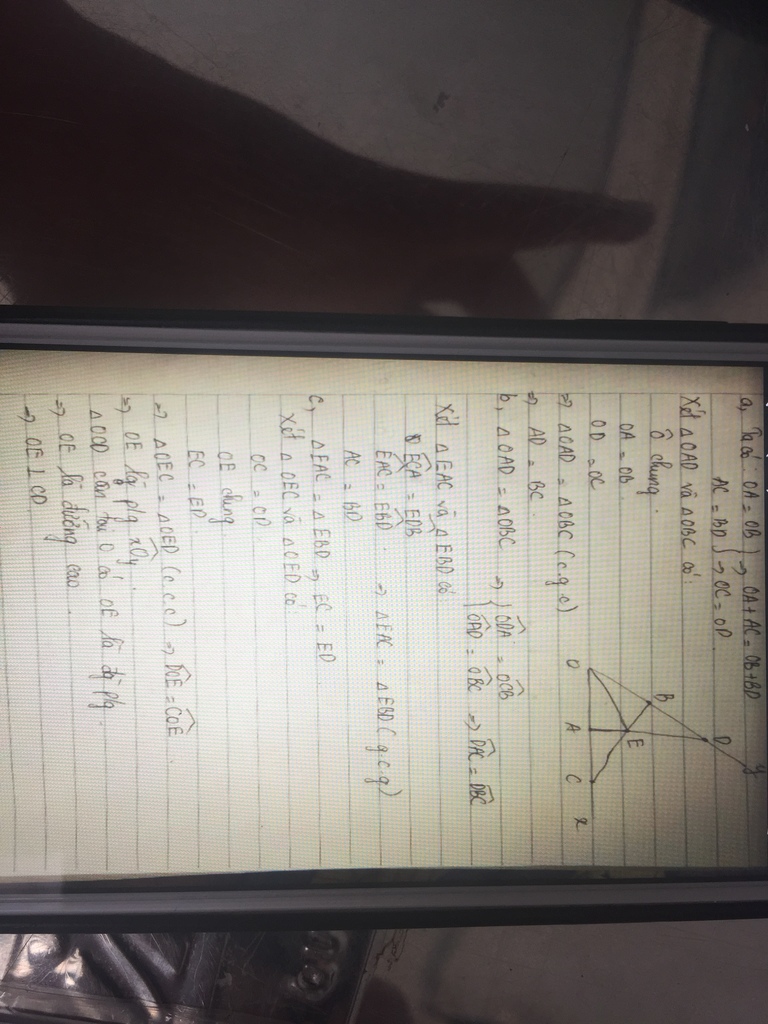 a, Ta có: OA = OB } ⇒ OA + AC = OB + BD
AC = BD } ⇒ OC = OD.
Xét ΔOAD và ΔOBC có:
Ô chung.
OA = OB.
OD = OC
⇒ ΔOAD = ΔOBC (c.g.c)
⇒ AD = BC.
b, ΔOAD = ΔOBC ⇒ { ODA = OCB
OAD = OBC ⇒ DAC = DBC
Xét ΔEAC và ΔEBD có
ECA = EDB
EAC = EBD. ⇒ ΔEAC = ΔEBD (g.c.g)
AC = BD
c, ΔEAC = ΔEBD ⇒ EC = ED
Xét ΔOEC và ΔOED có:
OC = OD
OE chung
EC = ED.
⇒ ΔOEC = ΔOED (c.c.c) ⇒ DOE = COE.
⇒ OE là p/g xOy.
ΔOCD cân tại O có OE là p/g.
⇒ OE là đường cao.
⇒ OE ⊥ CD
O
B
A
E
D
C
y
x